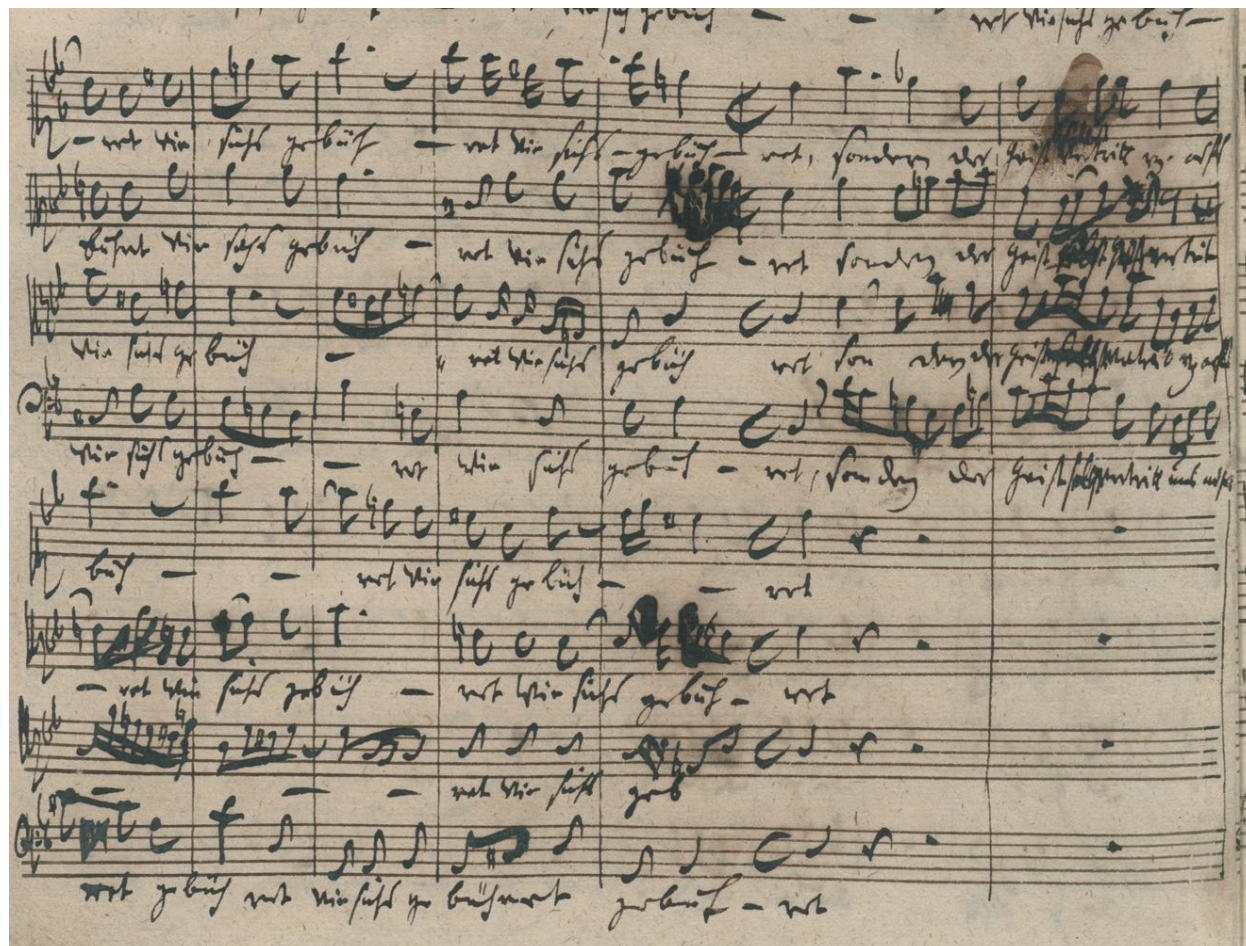 wie sichs gebüh — — ret wie sichs gebüh —
— ret wie sichs gebüh — ret wie sichs — gebüh — ret, sondern der Geist vertritt
wie sichs gebüh — ret wie sichs gebüh — ret sondern der Geist
wie sichs gebüh — ret wie sichs gebüh ret son dern der Geist
wie sichs gebüh — — ret wie sichs gebüh — ret, sondern der Geist selbst vertritt uns aufs
büh — — ret wie sichs gebüh — — ret
— ret wie sichs gebüh — ret wie sichs gebüh — ret
— — ret wie sichs geb
ret gebüh ret wie sichs ge bühret gebüh — ret